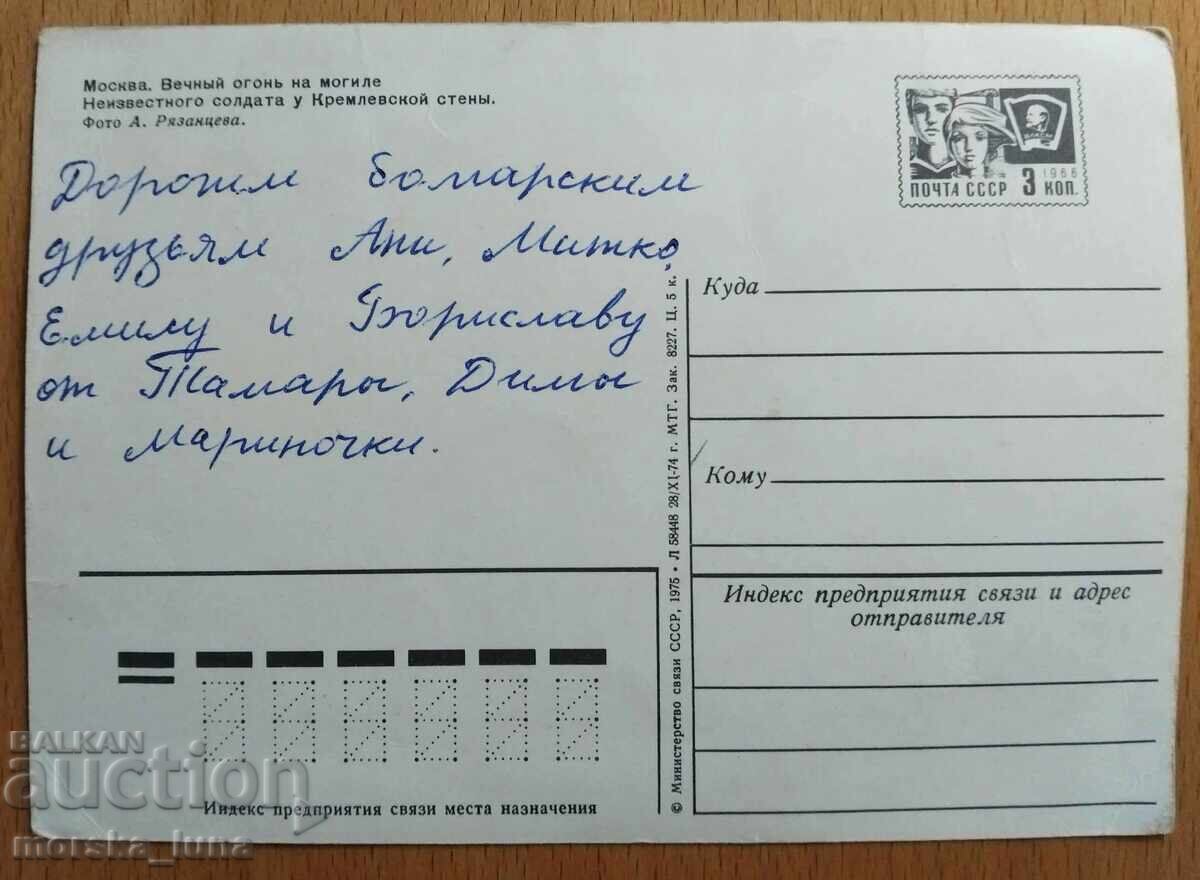 Москва. Вечный огонь на могиле
Неизвестного солдата у Кремлевской стены.
Фото А. Рязанцева.
ВЛКСМ
1966
ПОЧТА СССР 3 КОП.
Дорогим болгарским
друзьям Ани, Митко,
Емилу и Бориславу
от Тамары, Димы
и Мариночки.
Куда
Кому
Индекс предприятия связи и адрес
отправителя
© Министерство связи СССР, 1975 • Л 58448 28/XI-74 г. МТГ. Зак. 8227. Ц. 5 к.
Индекс предприятия связи места назначения
BALKAN
auction
morska_luna